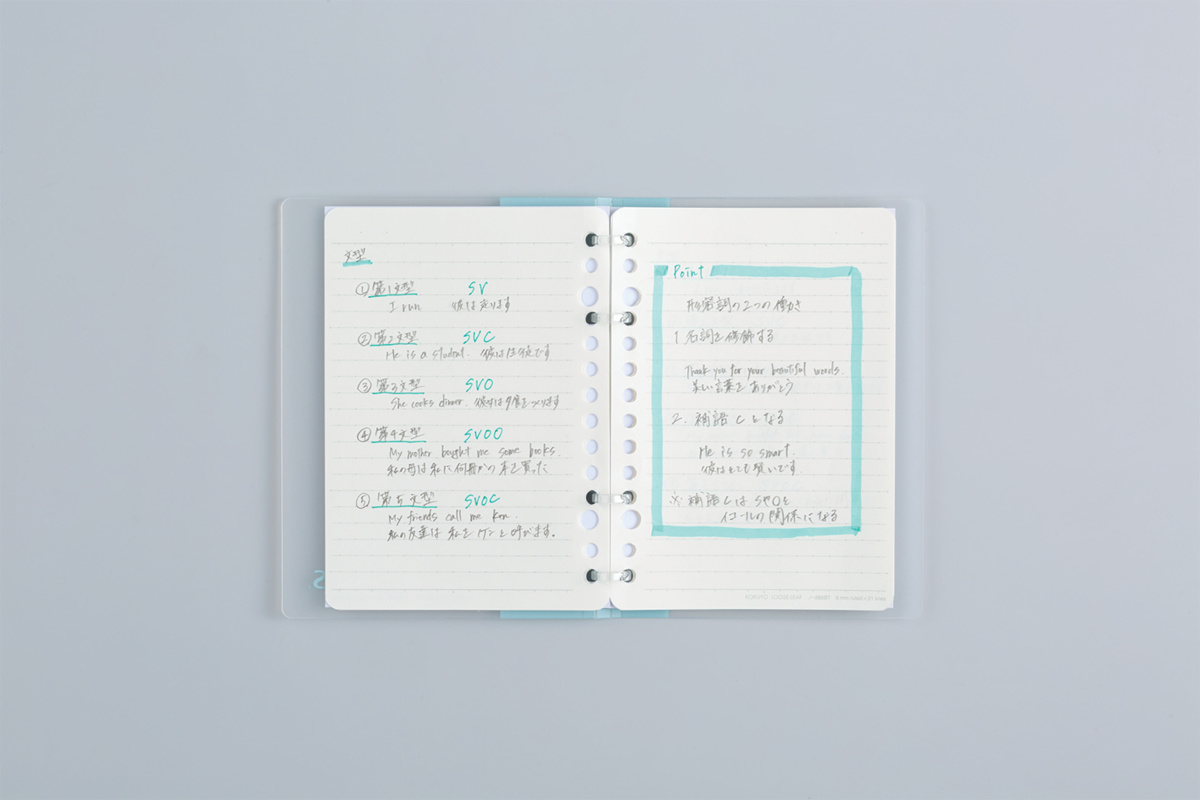 文型
① 第1文型 SV
I run 彼は走ります
② 第2文型 SVC
He is a student. 彼は生徒です
③ 第3文型 SVO
She cooks dinner. 彼女は夕食をつくります
④ 第4文型 SVOO
My mother bought me some books.
私の母は私に何冊かの本を買った
⑤ 第5文型 SVOC
My friends call me Ken.
私の友達は私をケンと呼びます。
Point
形容詞の2つの働き
1 名詞を修飾する
Thank you for your beautiful words.
美しい言葉をありがとう
2. 補語Cとなる
He is so smart.
彼はとても賢いです。
※ 補語CはSやOと
イコールの関係になる
KOKUYO LOOSE-LEAF
S